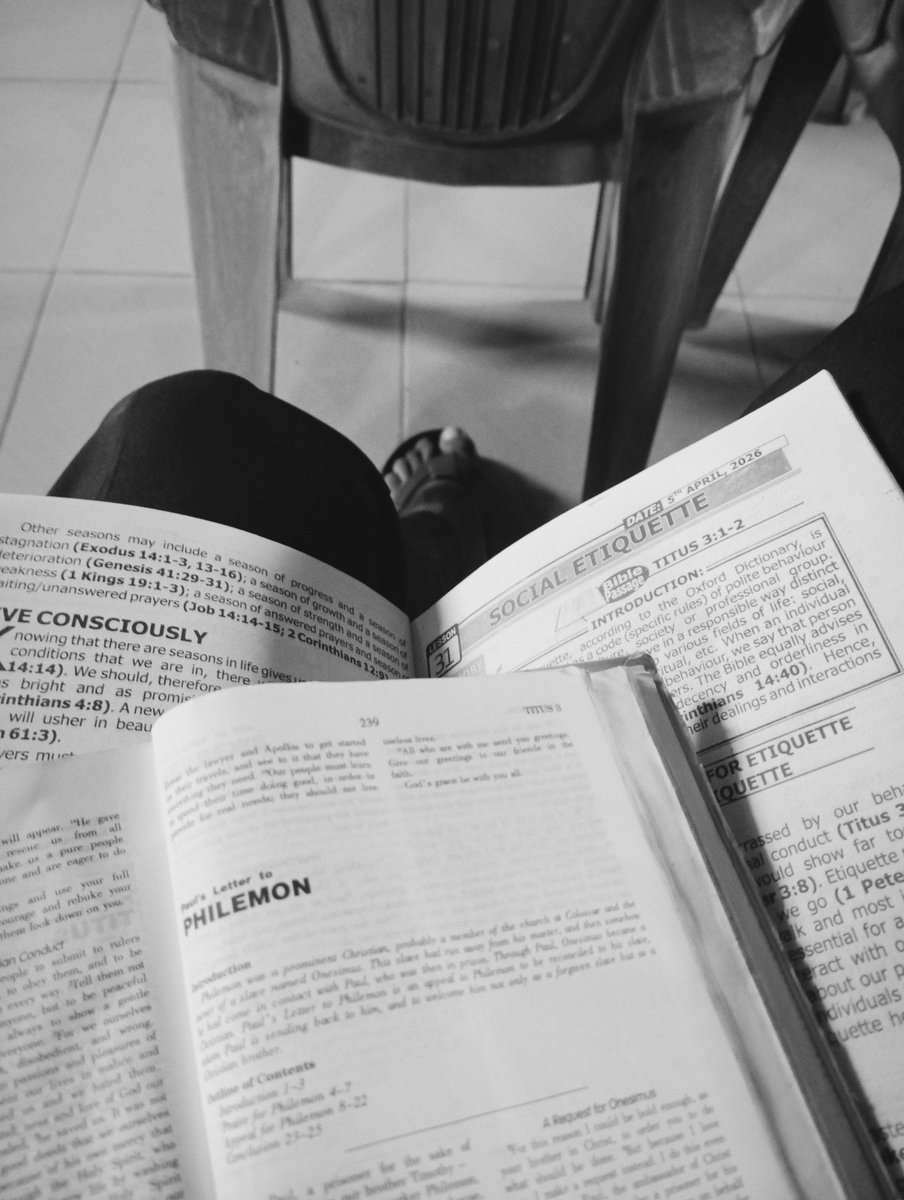 Other seasons may include a season of progress and a
stagnation (Exodus 14:1-3, 13-16); a season of growth and a season of
deterioration (Genesis 41:29-31); a season of strength and a season of
weakness (1 Kings 19:1-3); a season of answered prayers and season of
aiting/unanswered prayers (Job 14:14-15; 2 Corinthians 12:9)
VE CONSCIOUSLY
nowing that there are seasons in life gives
conditions that we are in, there
14:14). We should, therefore
s bright and as promis
rinthians 4:8). A new
will usher in beau
h 61:3).
yers must
LESSON
31
DATE: 5TH APRIL, 2026
SOCIAL ETIQUETTE
Bible Passage TITUS 3:1-2
INTRODUCTION:
uette, according to the Oxford Dictionary, is
s a code (specific rules) of polite behaviour
society or professional group.
ve in a responsible way distinct
various fields of life: social,
itual, etc. When an individual
behaviour, we say that person
ers. The Bible equally advises
decency and orderliness in
inthians 14:40). Hence,
heir dealings and interactions
FOR ETIQUETTE
EQUETTE
rassed by our beha
al conduct (Titus 3
would show far to
er 3:8). Etiquette
we go (1 Pete
alk and most i
essential for a
eract with o
bout our p
dividuals
uette he
will appear. 14He gave
rescue us from all
make us a pure people
one and are eager to do
ings and use your full
courage and rebuke your
them look down on you.
ian Conduct
people to submit to rulers
to obey them, and to be
every way. 2Tell them not
anyone, but to be peaceful
always to show a gentle
everyone. 3For we ourselves
disobedient, and wrong.
passions and pleasures of
our lives in malice and
d us and we hated them.
ness and love of God our
d, 5he saved us. It was not
good deeds that we ourselves
because of his own mercy that
ugh the Holy Spirit, who
by washing
239
TITUS 3
the lawyer and Apollos to get started
their travels, and see to it that they have
everything they need. 14Our people must learn
to spend their time doing good, in order to
provide for real needs; they should not live
useless lives.
15All who are with me send you greetings.
Give our greetings to our friends in the
faith.
God's grace be with you all.
Paul's Letter to
PHILEMON
Introduction
Philemon was a prominent Christian, probably a member of the church at Colossae and the
owner of a slave named Onesimus. This slave had run away from his master, and then somehow
he had come in contact with Paul, who was then in prison. Through Paul, Onesimus became a
Christian. Paul's Letter to Philemon is an appeal to Philemon to be reconciled to his slave,
whom Paul is sending back to him, and to welcome him not only as a forgiven slave but as a
Christian brother.
Outline of Contents
Introduction 1–3
Praise for Philemon 4–7
Appeal for Philemon 8–22
Conclusion 23–25
Paul, a prisoner for the sake of
our brother Timothy –
Philemon,
A Request for Onesimus
8For this reason I could be bold enough, as
your brother in Christ, to order you to do
what should be done. 9But because I love
I make a request instead. I do this even
Paul, the ambassador of Christ